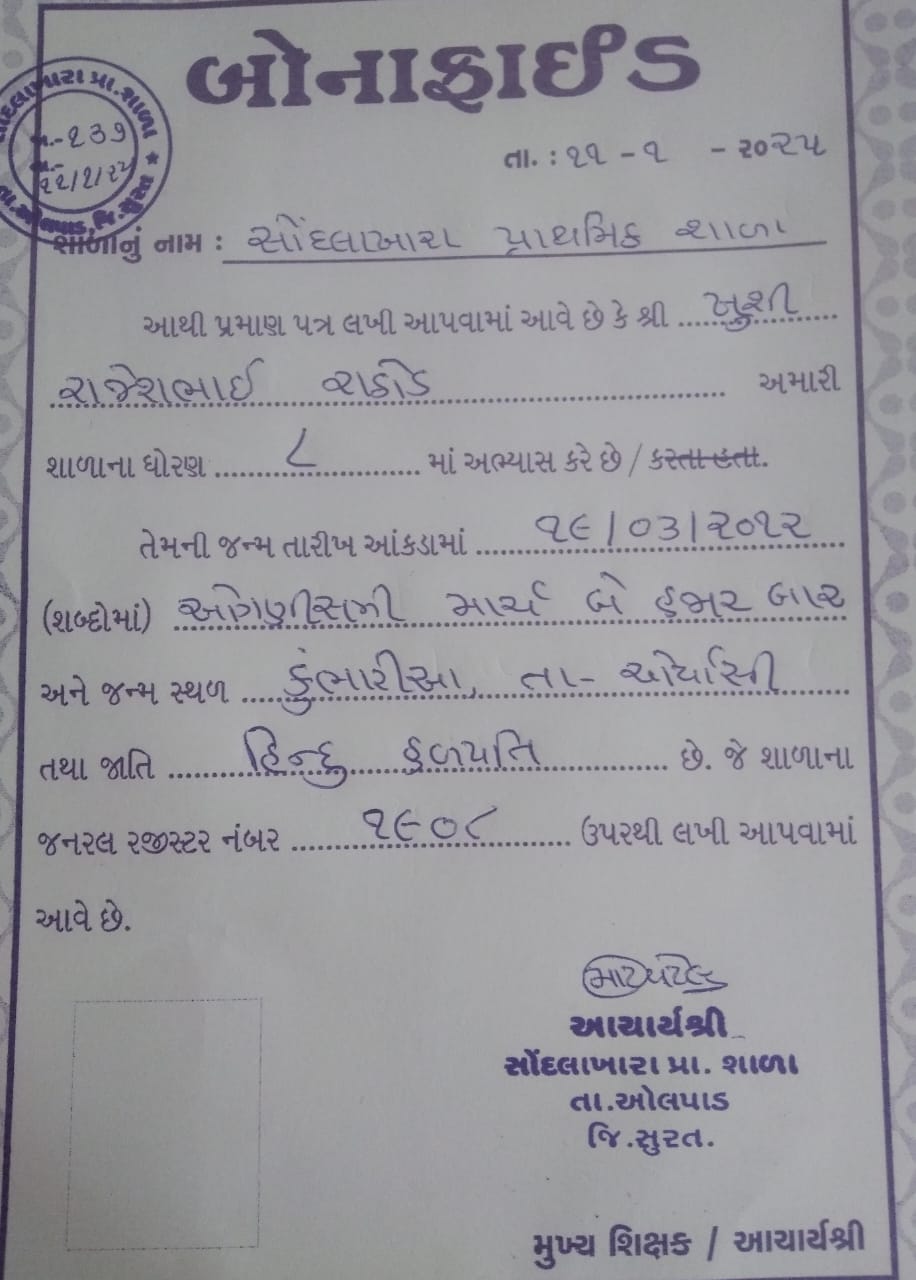 બોનાફાઈડ
સોંદલાખારા પ્રા. શાળા
ન.-૨૩૭
તા.-
૨૨/૧/૨૫
તા.ઓલપાડ, જિ.સુરત
તા. : ૨૨ - ૧ - ૨૦૨૫
શાળાનું નામ : સોંદલાખારા પ્રાથમિક શાળા
આથી પ્રમાણ પત્ર લખી આપવામાં આવે છે કે શ્રી ખુશી
રાજેશભાઈ રાઠોડ અમારી
શાળાના ધોરણ ૮ માં અભ્યાસ કરે છે / કરતા હતા.
તેમની જન્મ તારીખ આંકડામાં ૧૯/૦૩/૨૦૧૨
(શબ્દોમાં) ઓગણીસમી માર્ચ બે હજાર બાર
અને જન્મ સ્થળ કુંભારીઆ, તા- ચોર્યાસી
તથા જાતિ હિન્દુ હળપતિ છે. જે શાળાના
જનરલ રજીસ્ટર નંબર ૧૯૦૮ ઉપરથી લખી આપવામાં
આવે છે.
આચાર્યશ્રી
સોંદલાખારા પ્રા. શાળા
તા.ઓલપાડ
જિ.સુરત.
મુખ્ય શિક્ષક / આચાર્યશ્રી